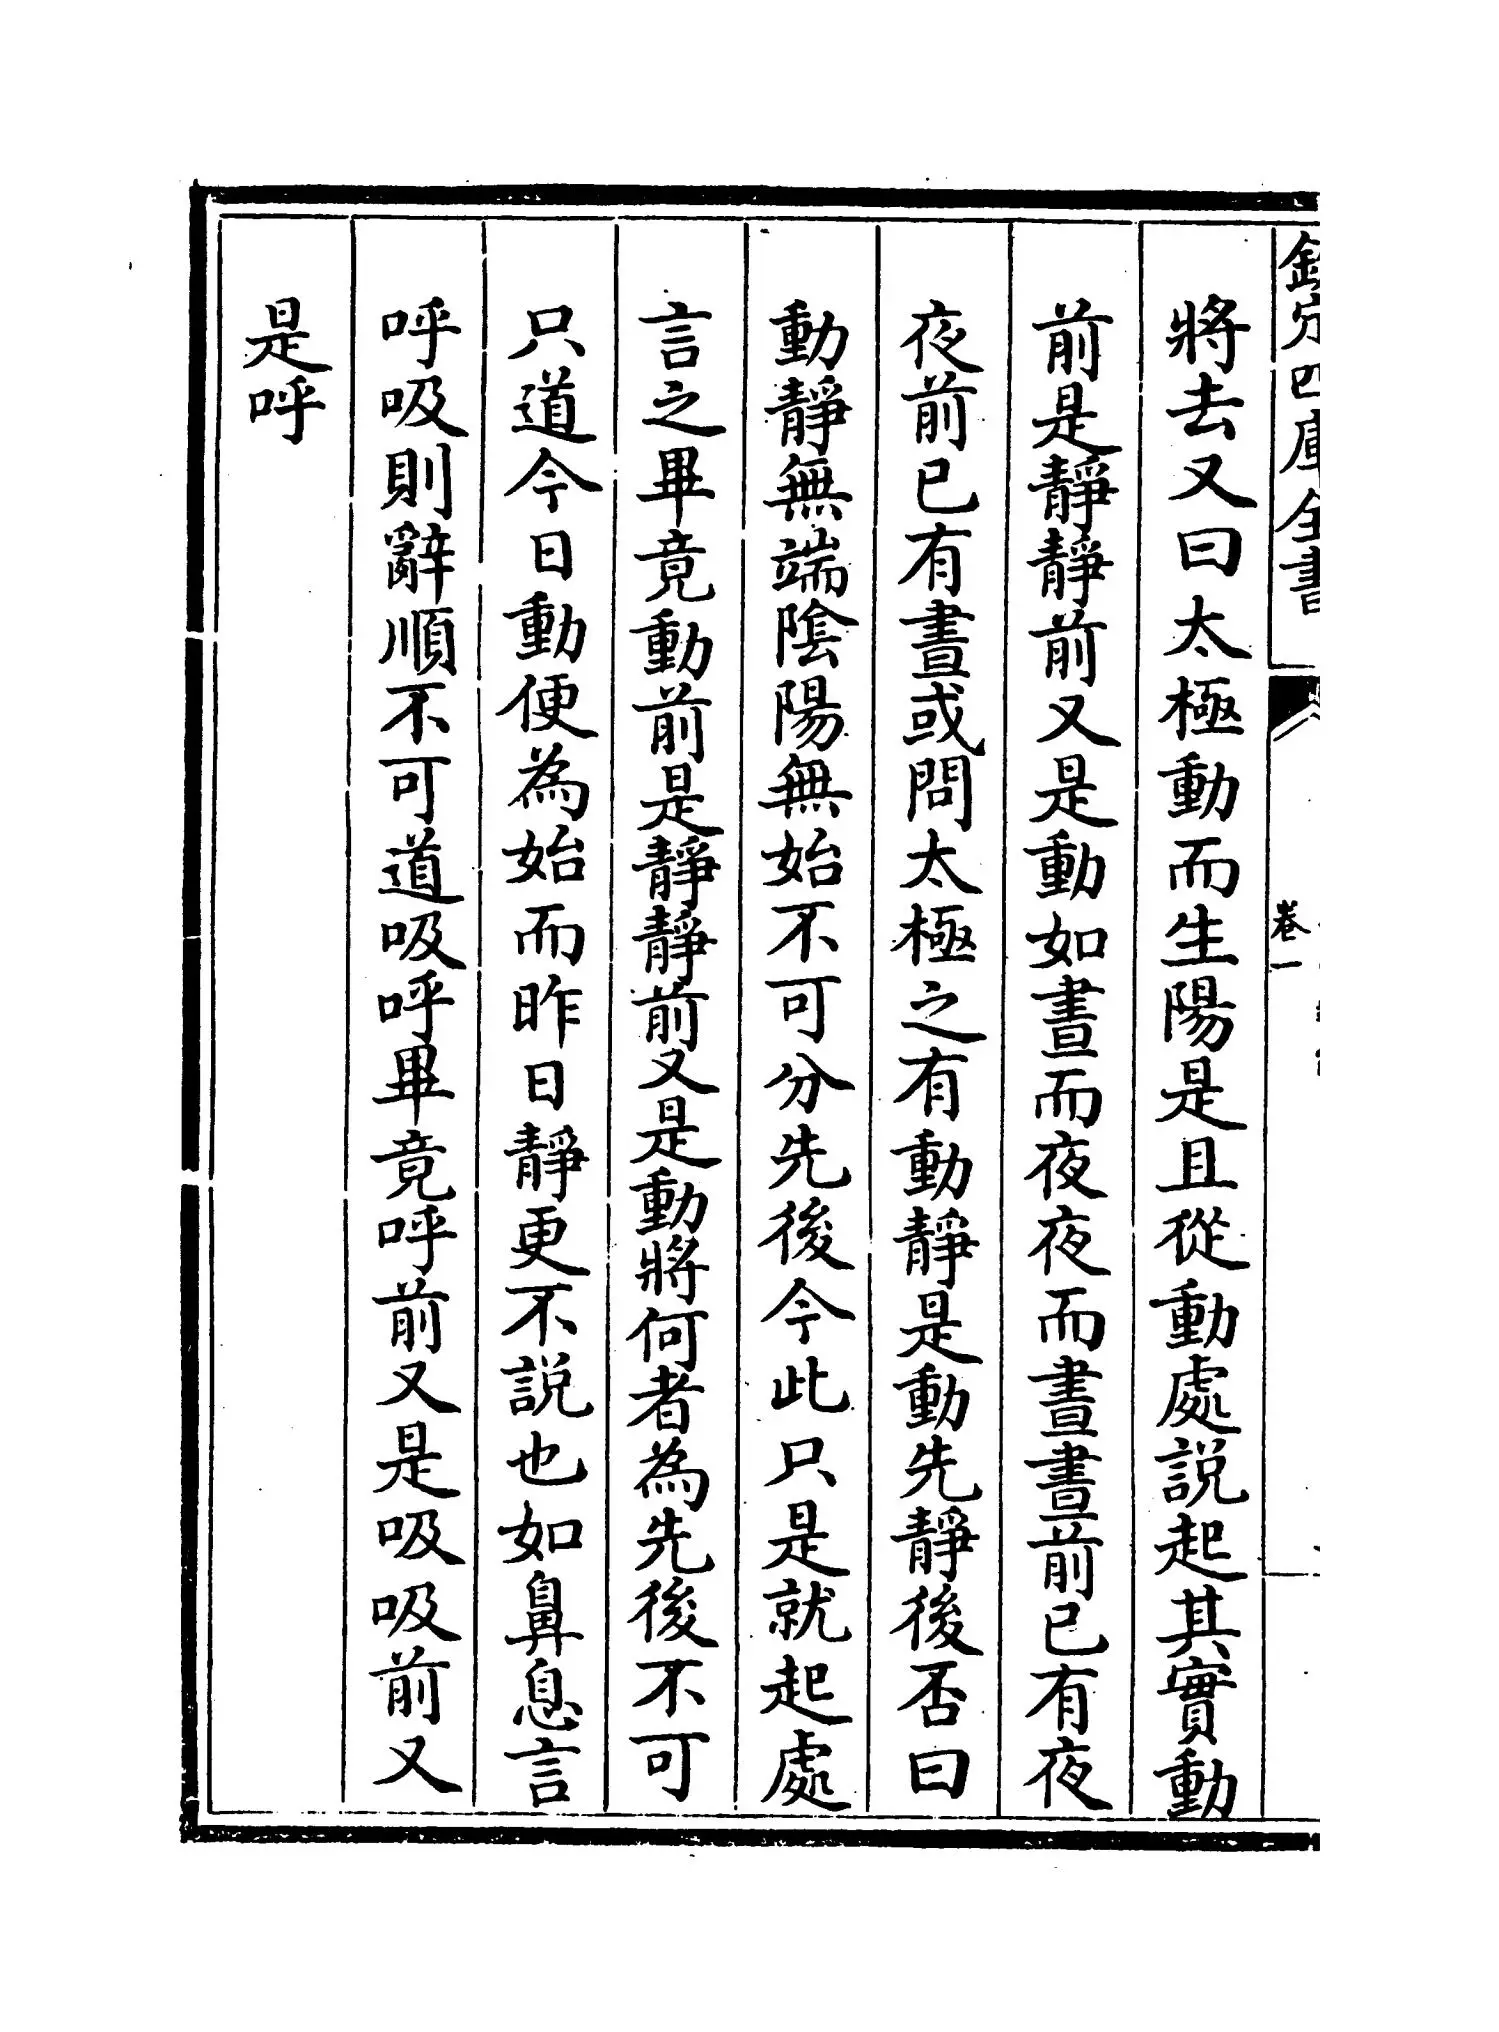 欽定四庫全書
卷一
將去又曰太極動而生陽是且從動處説起其實動
前是靜靜前又是動如晝而夜夜而晝晝前已有夜
夜前已有晝或問太極之有動靜是動先靜後否曰
動靜無端陰陽無始不可分先後今此只是就起處
言之畢竟動前是靜靜前又是動將何者為先後不可
只道今日動便為始而昨日靜更不説也如鼻息言
呼吸則辭順不可道吸呼畢竟呼前又是吸吸前又
是呼